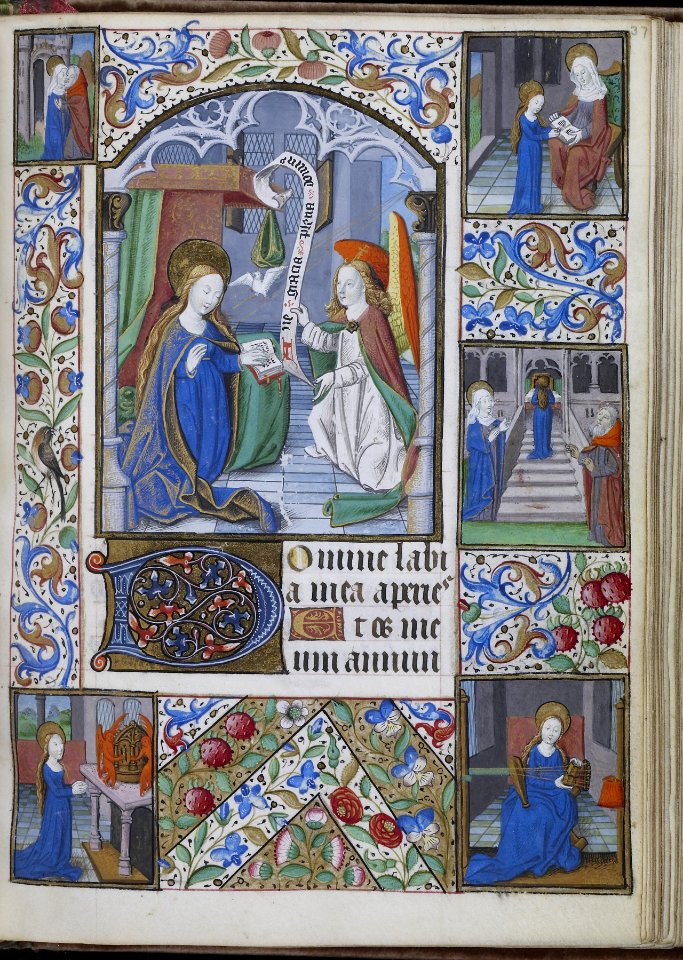 37
Aue gracia plena domin
Domine labi
a mea aperies
Et os me
um annun